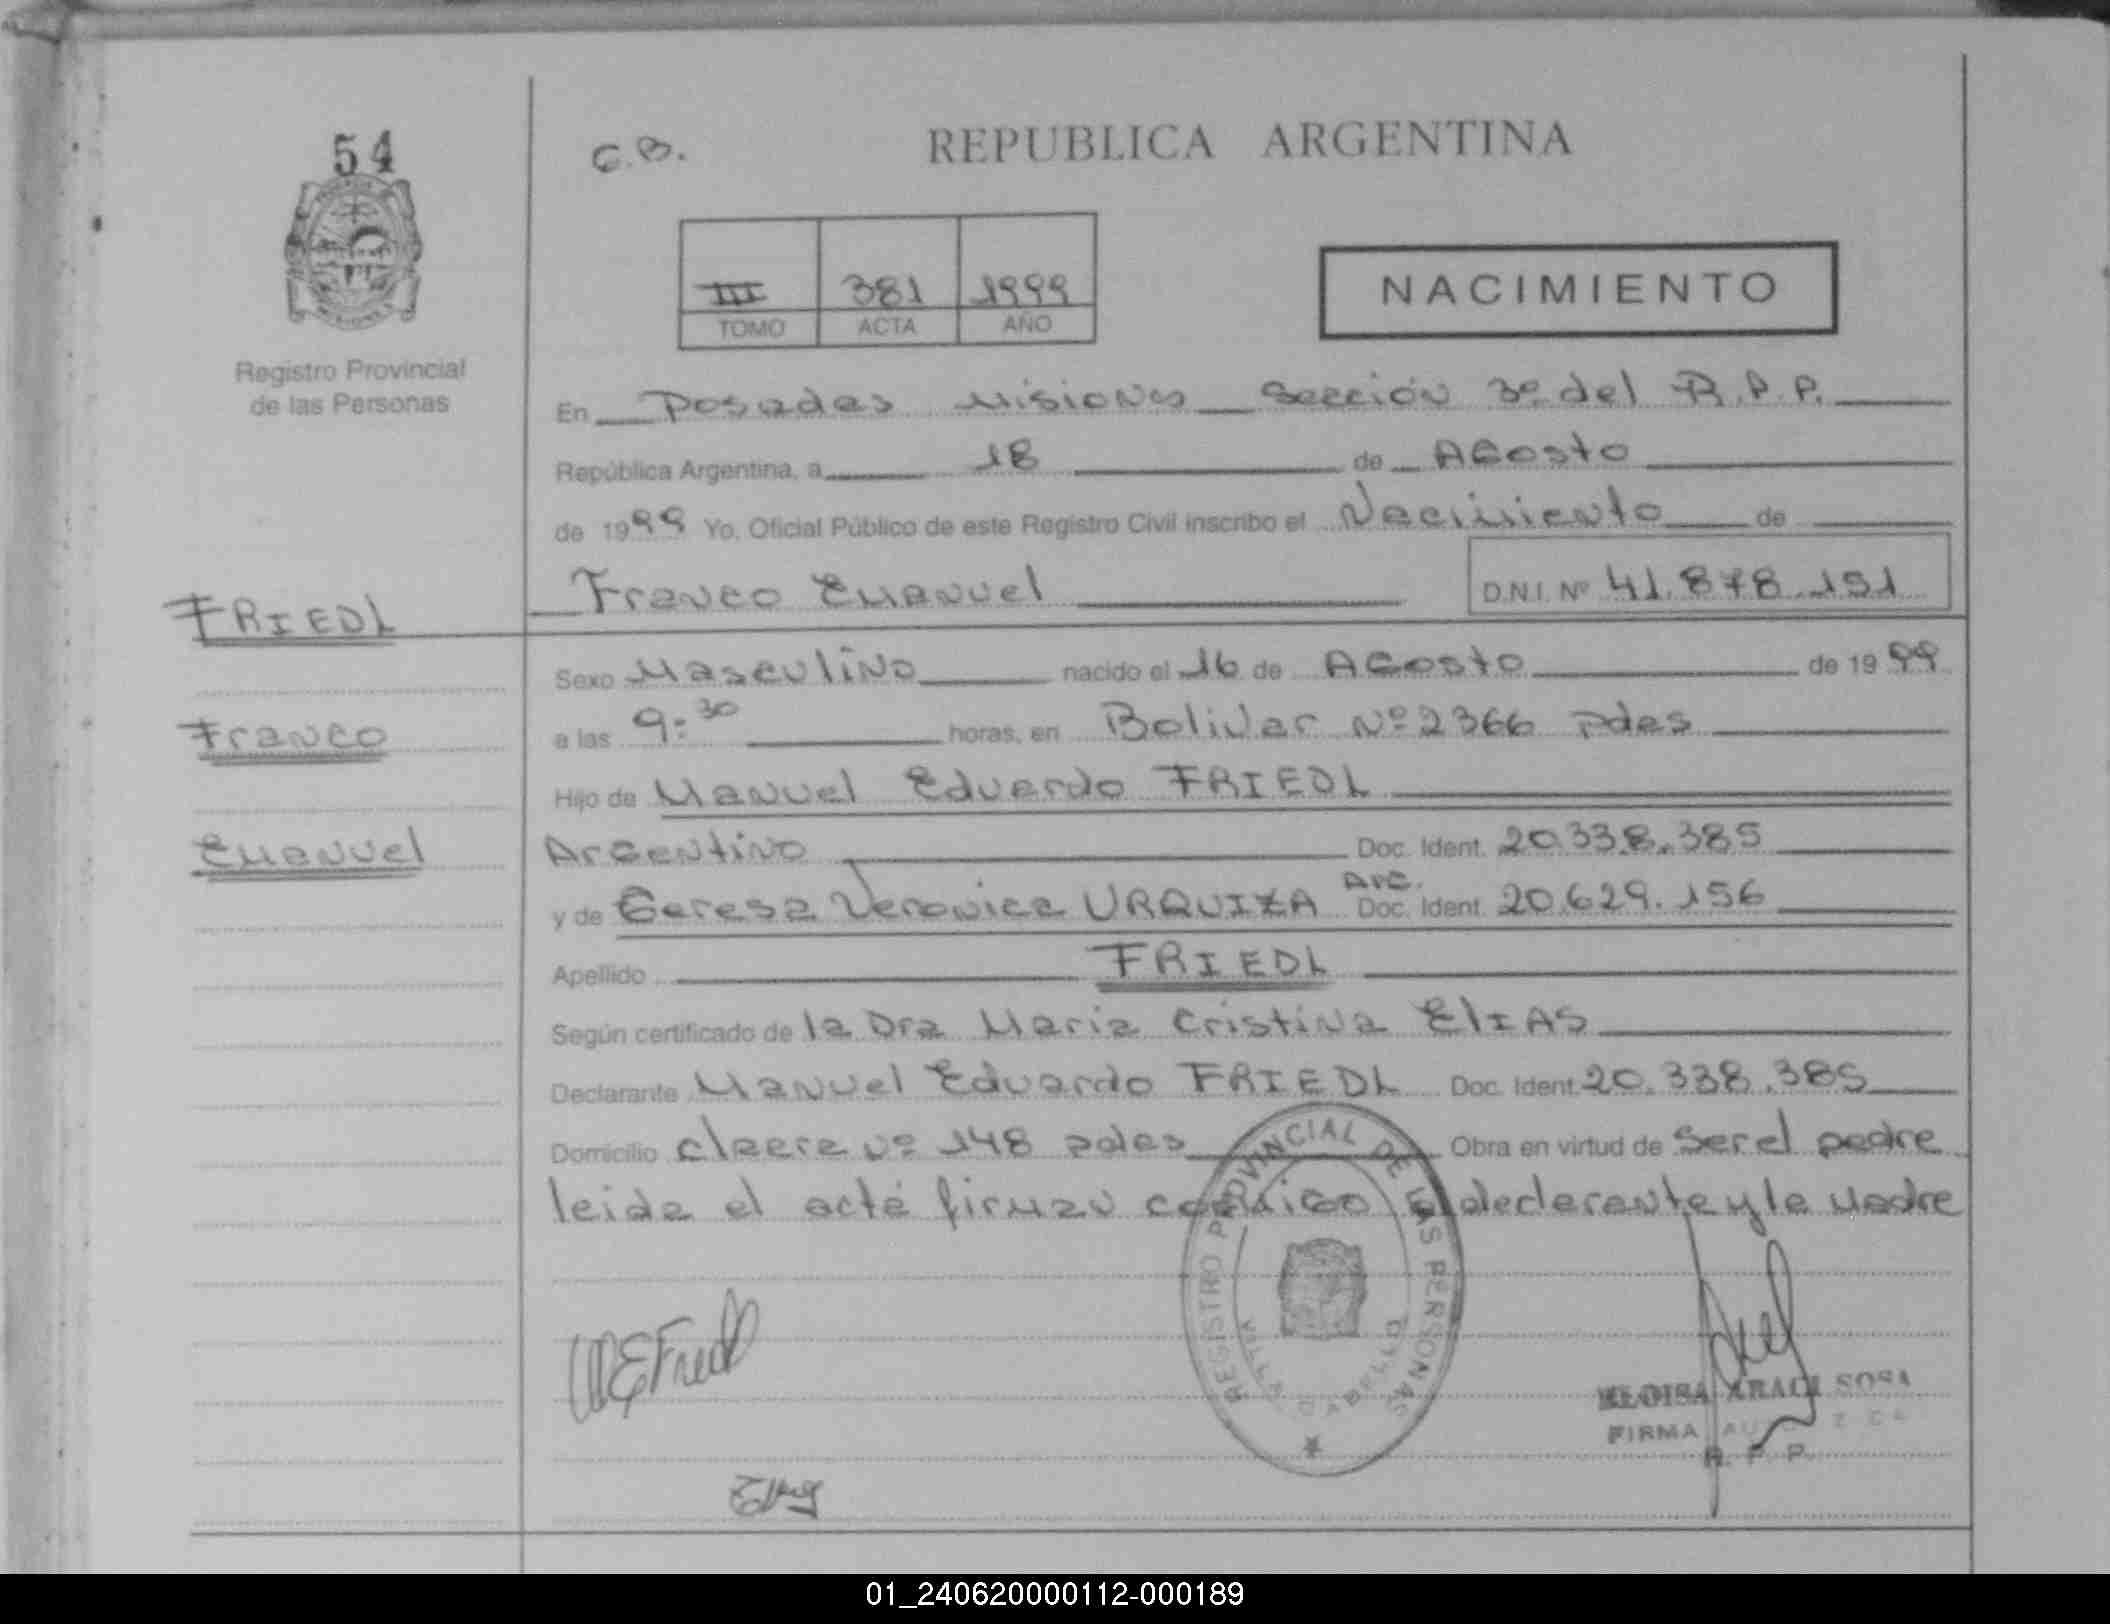 54
C.B.
REPUBLICA ARGENTINA
III 381 1999
TOMO ACTA AÑO
NACIMIENTO
Registro Provincial
de las Personas
En Posadas Misiones Sección 3º del R.P.P.
República Argentina, a 18 de Agosto
de 1999 Yo, Oficial Público de este Registro Civil inscribo el Nacimiento de
Franco Emanuel D.N.I. Nº 41.878.151
FRIEDL
Sexo Masculino nacido el 16 de Agosto de 1999
Franco
a las 9:30 horas, en Bolivar Nº 2366 Pdas
Hijo de Manuel Eduardo FRIEDL
Emanuel
Argentino Doc. Ident. 20.338.385
y de Teresa Veronica URQUIZA Arg. Doc. Ident. 20.629.156
Apellido FRIEDL
Según certificado de la Dra Maria Cristina ElIAS
Declarante Manuel Eduardo FRIEDL Doc. Ident. 20.338.385
Domicilio Nº 148 pdas Obra en virtud de Ser el padre
leida el acta firman conmigo el declarante y la madre
REGISTRO PROVINCIAL DE LAS PERSONAS
ELOISA ARACI SOSA
FIRMA
R. P. P.
01_240620000112-000189